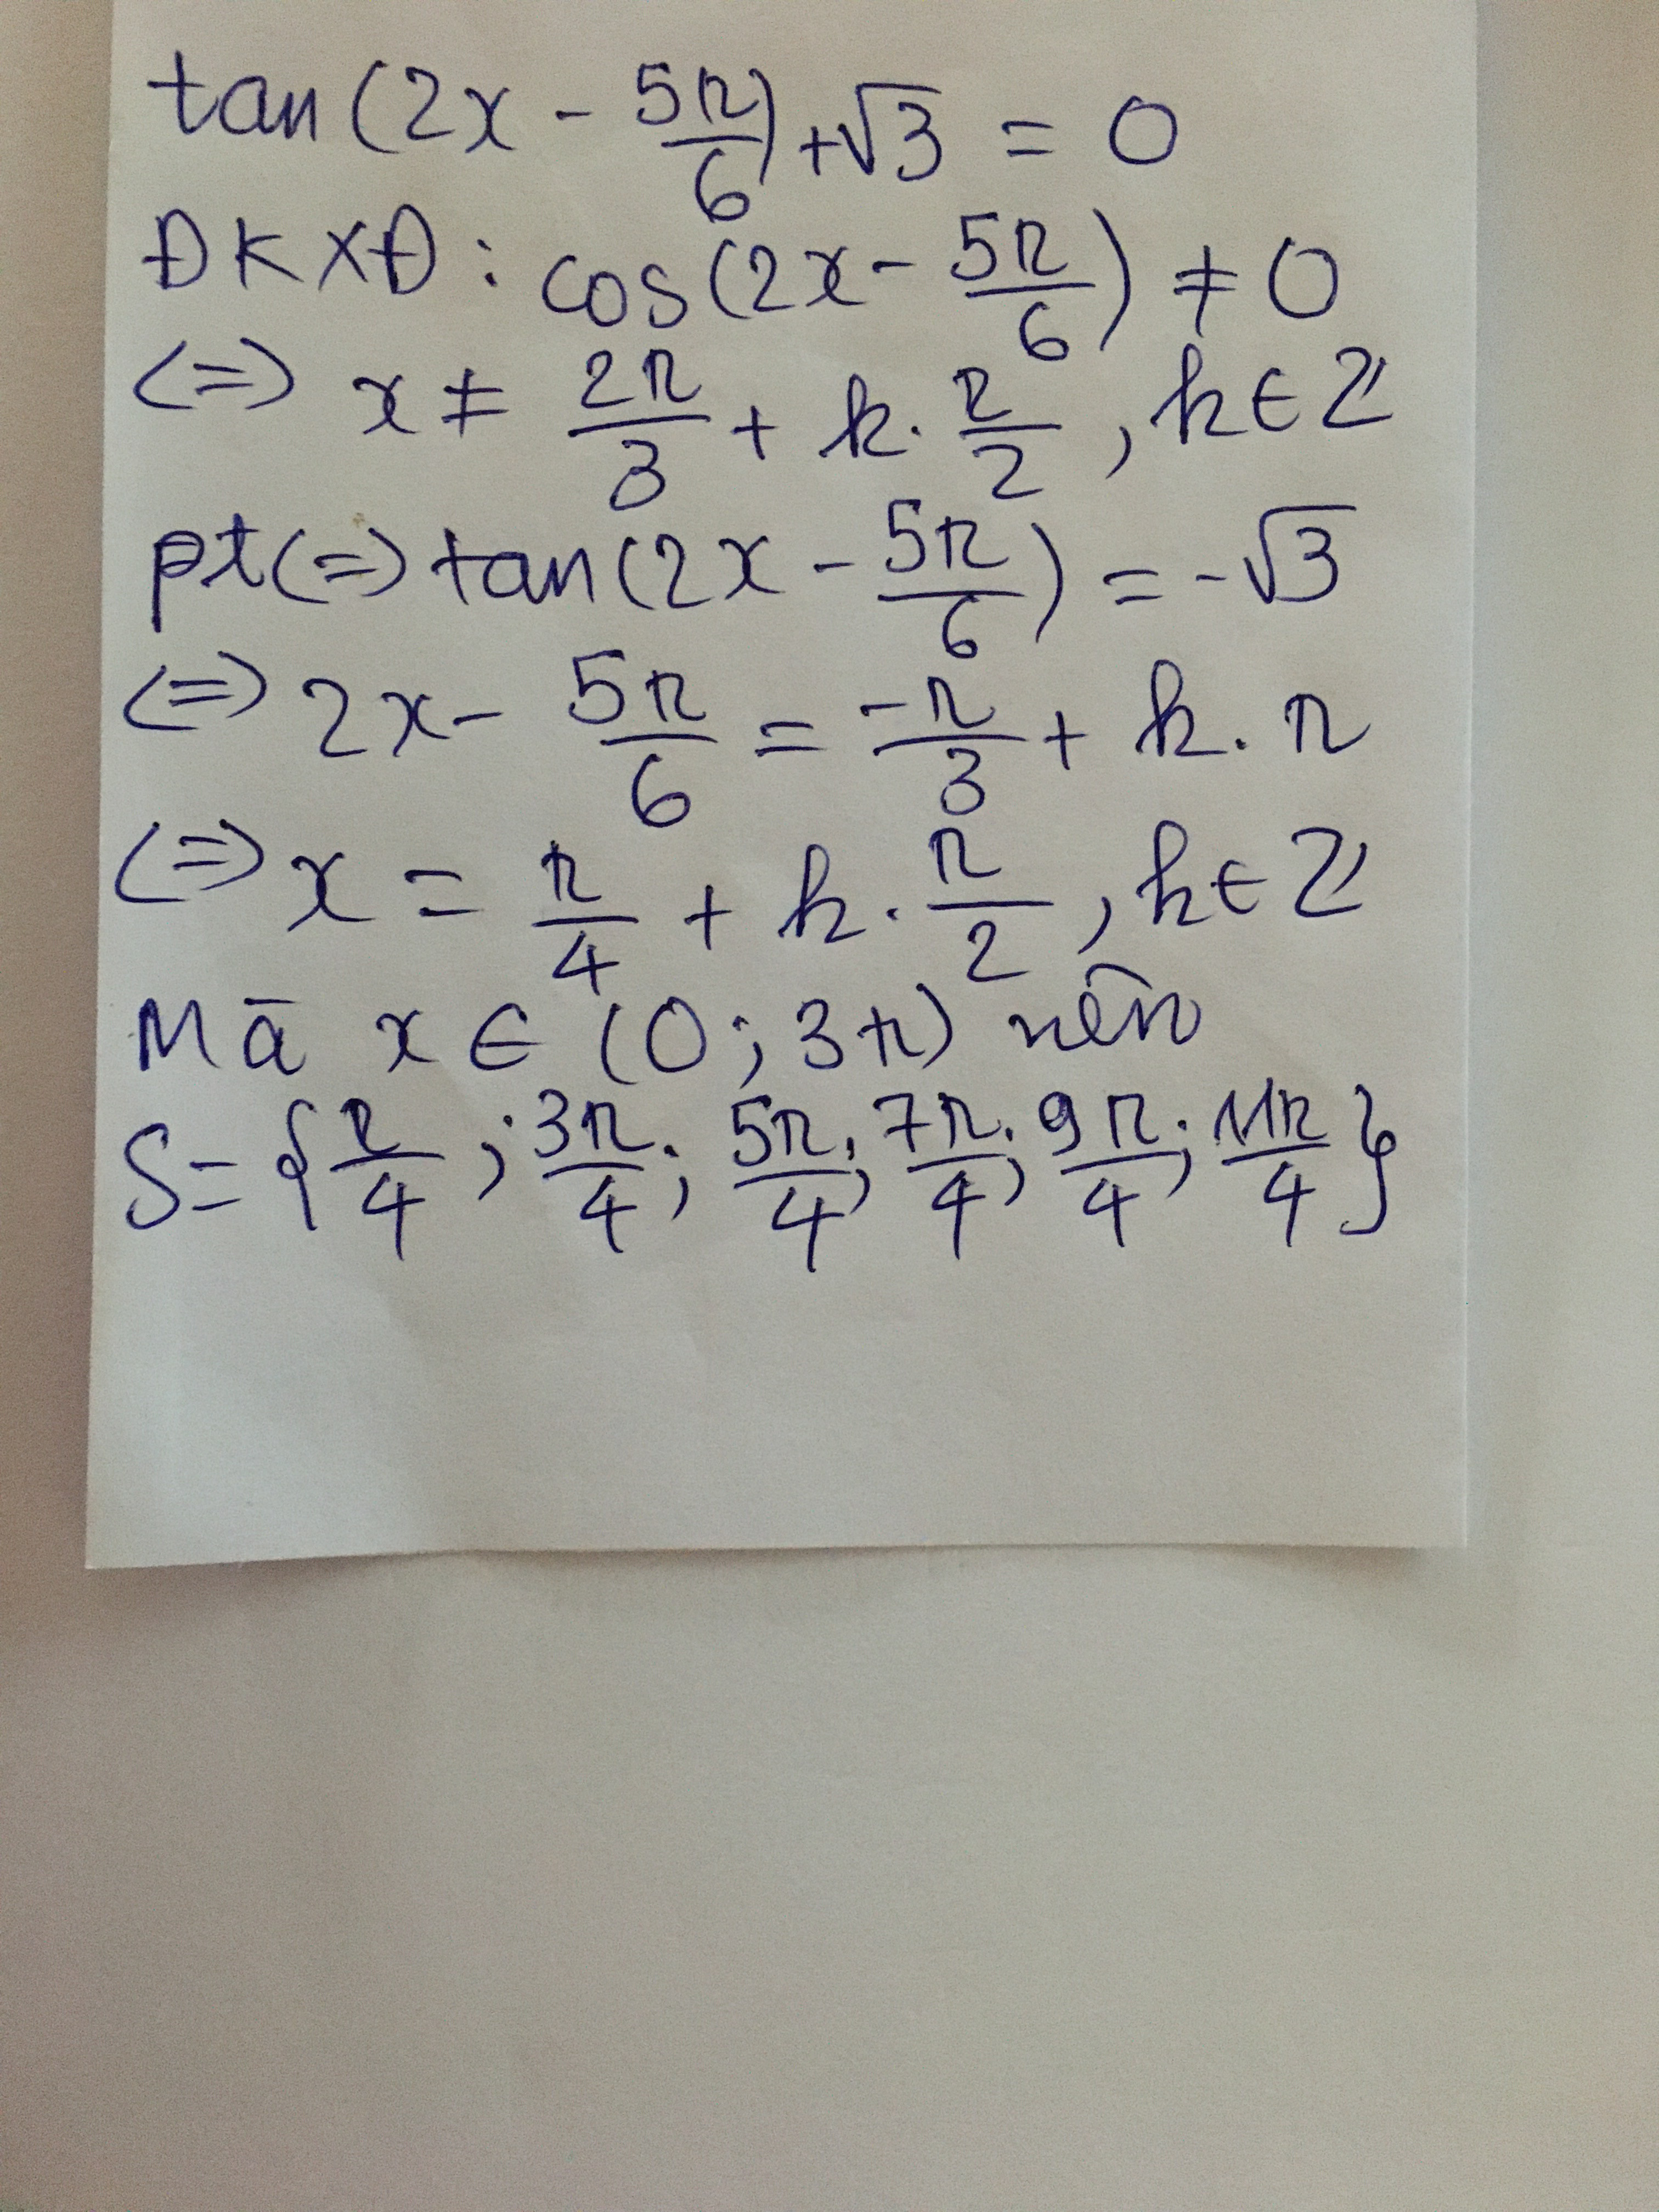 tan(2x - 5π/6) + √3 = 0
ĐKXĐ: cos(2x - 5π/6) ≠ 0
<=> x ≠ 2π/3 + k. π/2, k ∈ Z
pt <=> tan(2x - 5π/6) = -√3
<=> 2x - 5π/6 = -π/3 + k. π
<=> x = π/4 + k. π/2, k ∈ Z
Mà x ∈ (0; 3π) nên
S = {π/4; 3π/4; 5π/4; 7π/4; 9π/4; 11π/4}